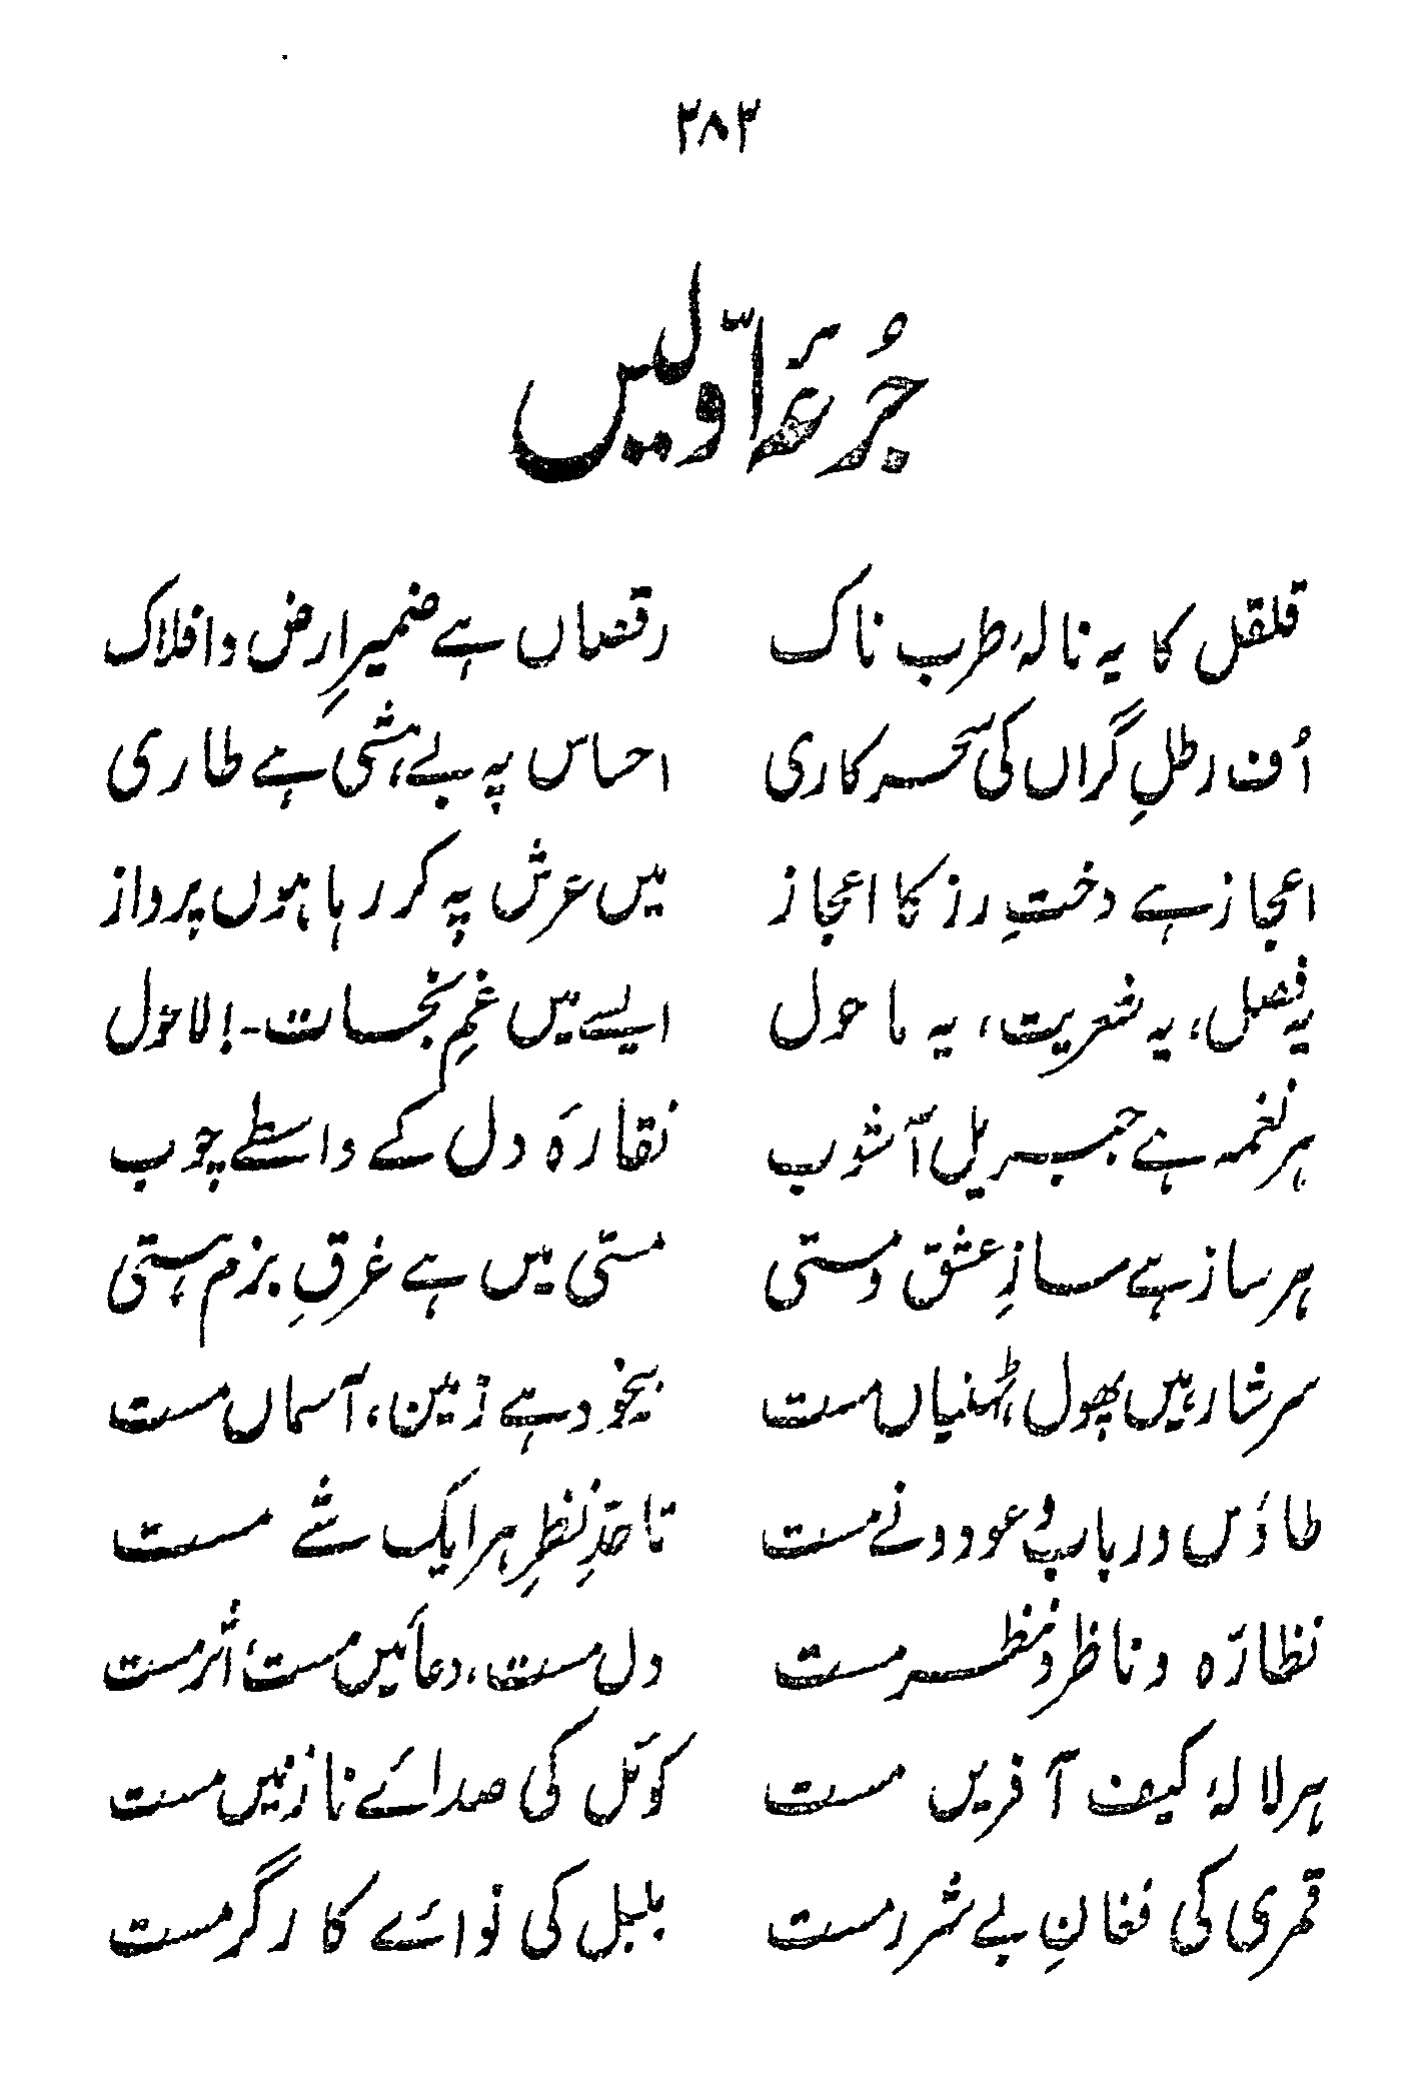 ۳۸۳
جُرعۂ اوّلیں
قلقل کا یہ نالۂ طرب ناک رقصاں ہے ضمیرِ ارض و افلاک
اُف رطلِ گراں کی سحر کاری احساس پہ بے ہُشی ہے طاری
اعجاز ہے دختِ رز کا اعجاز میں عرش پہ کر رہا ہوں پرواز
یہ فصل، یہ شعریت، یہ ماحول ایسے میں غمِ نجات-! لاحول
ہر نغمہ ہے جبریل آشوب نقارۂ دل کے واسطے چوب
ہر ساز ہے سازِ عشق و مستی مستی میں ہے غرقِ بزم ہستی
سرشار ہیں پھول، ٹہنیاں مست بیخود ہے زمین، آسماں مست
طاؤس و رباب و عود و نے مست تا حدِّ نظر ہر ایک شے مست
نظارہ و ناظر و نظر مست دل مست، دعائیں مست، اثر مست
ہر لالۂ کیف آفریں مست کوئل کی صدائے نازنیں مست
قمری کی فغانِ بے شرر مست بلبل کی نوائے کارگر مست